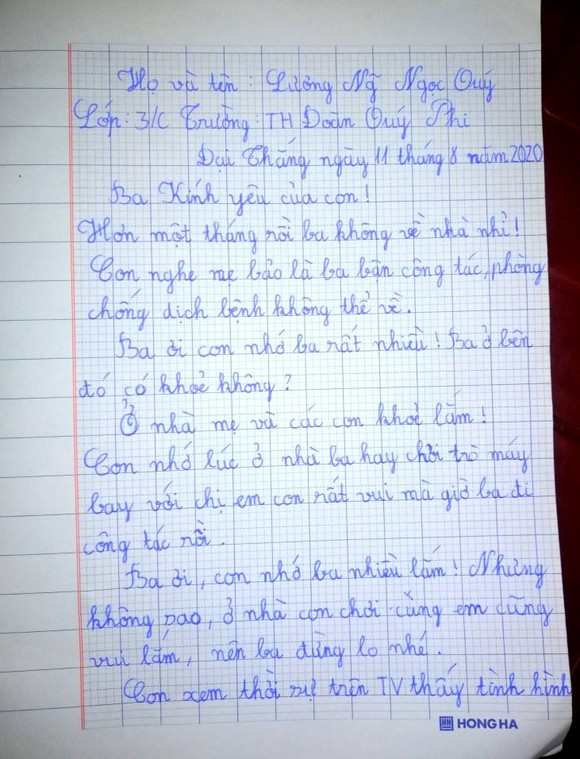 Họ và tên : Lương Ng̃ Ngọc Quý
Lớp : 3/C Trường : TH Đoàn Quý Phi
Đại Thắng ngày 11 tháng 8 năm 2020
Ba Kính yêu của con !
Hơn một tháng rồi ba không về nhà nhỉ !
Con nghe mẹ bảo là ba bận công tác, phòng
chống dịch bệnh không thể về.
Ba ơi con nhớ ba rất nhiều ! Ba ở bên
đó có khoẻ không ?
Ở nhà mẹ và các con khoẻ lắm !
Con nhớ lúc ở nhà ba hay chơi trò máy
bay với chị em con rất vui mà giờ ba đi
công tác rồi .
Ba ơi, con nhớ ba nhiều lắm ! Nhưng
không sao, ở nhà con chơi cùng em cũng
vui lắm, nên ba đừng lo nhé .
Con xem thời sự trên TV thấy tình hình
HH HONG HA